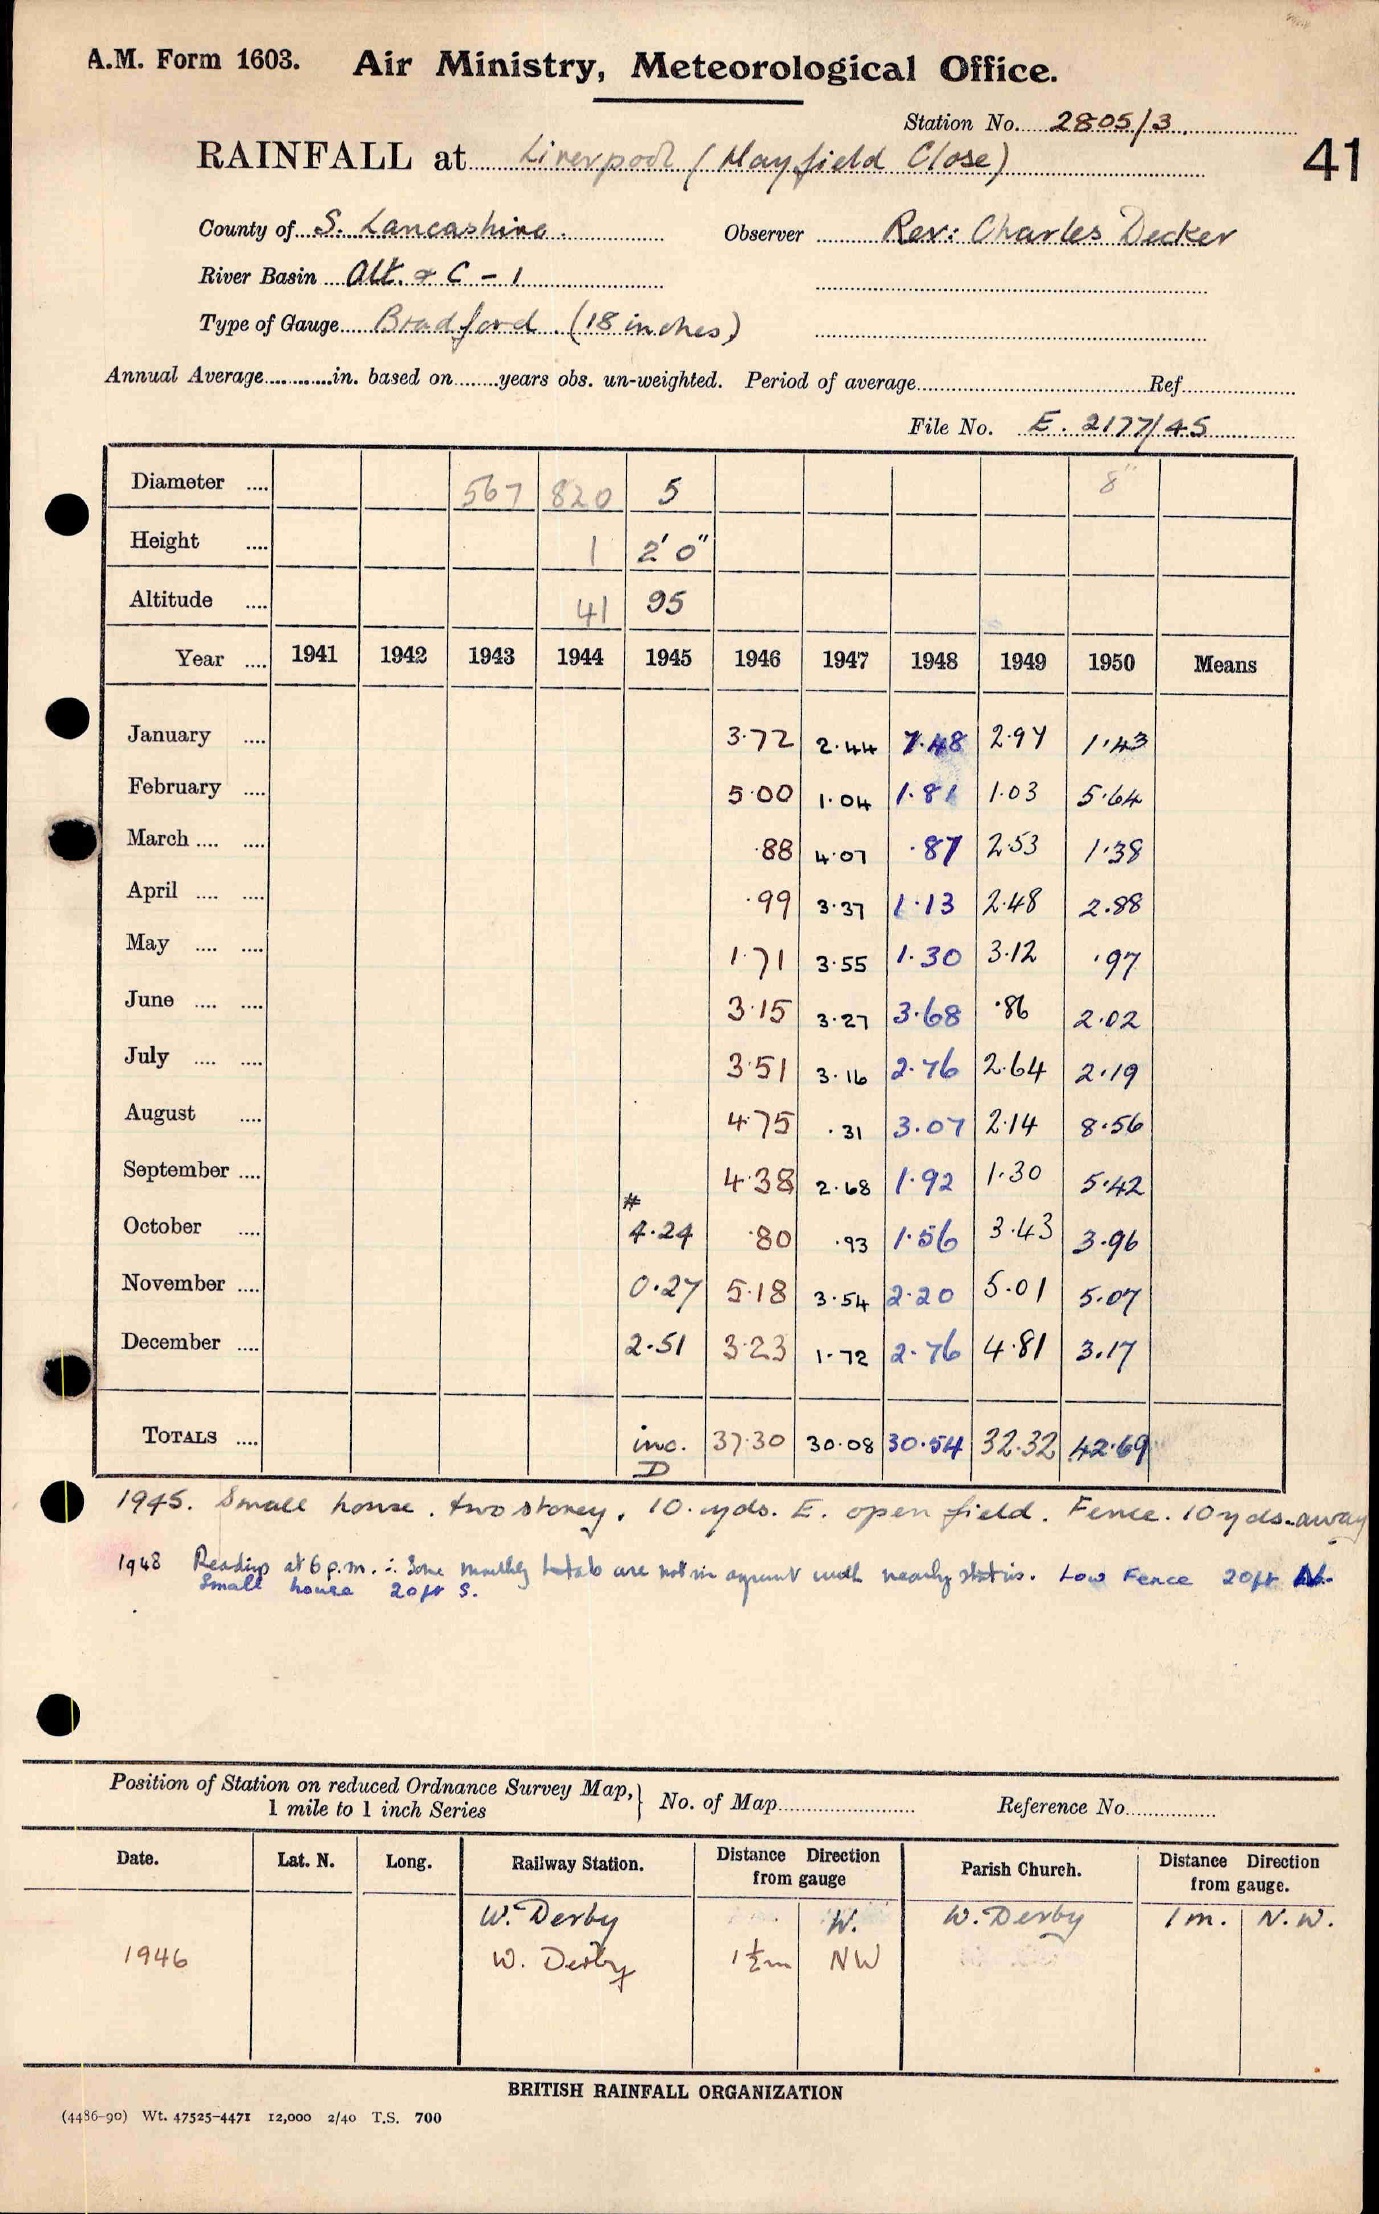 A.M. Form 1603. Air Ministry, Meteorological Office.
Station No. 2805/3
RAINFALL at Liverpool (Mayfield Close)
41
County of S. Lancashire. Observer Rev: Charles Decker
River Basin Alt. & C - 1
Type of Gauge Bradford (18 inches)
Annual Average............in. based on........years obs. un-weighted. Period of average.................... Ref....................
File No. E. 2177/45
Diameter .... 567 820 5 8"
Height .... 1 2' 0"
Altitude .... 41 95
Year .... 1941 1942 1943 1944 1945 1946 1947 1948 1949 1950 Means
January .... 3.72 2.44 7.48 2.97 1.43
February .... 5.00 1.04 1.81 1.03 5.64
March .... .... .88 4.07 .87 2.53 1.38
April .... .... .99 3.37 1.13 2.48 2.88
May .... .... 1.71 3.55 1.30 3.12 .97
June .... .... 3.15 3.27 3.68 .86 2.02
July .... .... 3.51 3.16 2.76 2.64 2.19
August .... 4.75 .31 3.07 2.14 8.56
September .... 4.38 2.68 1.92 1.30 5.42
#
October .... 4.24 .80 .93 1.56 3.43 3.96
November .... 0.27 5.18 3.54 2.20 5.01 5.07
December .... 2.51 3.23 1.72 2.76 4.81 3.17
TOTALS .... inc. 37.30 30.08 30.54 32.32 42.69
D
1945. Small house. two storey. 10. yds. E. open field. Fence. 10 yds. away
1948 Readings at 6 p.m. ∴ Some monthly totals are not in agreement with nearby stations. Low Fence 20ft N.
Small house 20ft S.
Position of Station on reduced Ordnance Survey Map, } No. of Map.................... Reference No....................
1 mile to 1 inch Series
Date. Lat. N. Long. Railway Station. Distance Direction from gauge Parish Church. Distance Direction from gauge.
W. Derby W. W. Derby 1 m. N.W.
1946 W. Derby 1½m NW
BRITISH RAINFALL ORGANIZATION
(4486-90) Wt. 47525-4471 12,000 2/40 T.S. 700